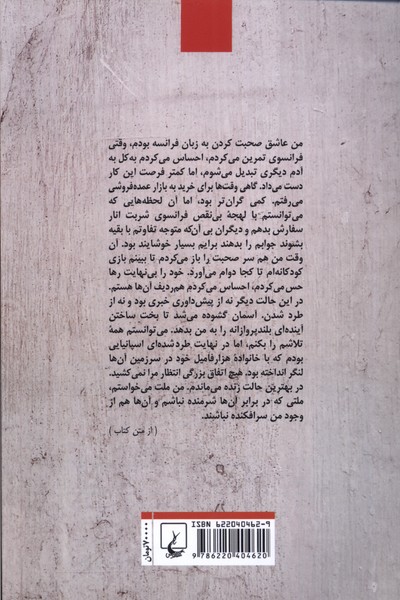 من عاشق صحبت کردن به زبان فرانسه بودم، وقتی
فرانسوی تمرین می‌کردم، احساس می‌کردم به‌کل به
آدم دیگری تبدیل می‌شوم، اما کمتر فرصت این کار
دست می‌داد. گاهی وقت‌ها برای خرید به بازار عمده‌فروشی
می‌رفتم. کمی گران‌تر بود، اما آن لحظه‌هایی که
می‌توانستم با لهجهٔ بی‌نقص فرانسوی شربت انار
سفارش بدهم و دیگران بی آن‌که متوجه تفاوتم با بقیه
بشوند جوابم را بدهند برایم بسیار خوشایند بود. آن
وقت من هم سر صحبت را باز می‌کردم تا ببینم بازی
کودکانه‌ام تا کجا دوام می‌آورد. خود را بی‌نهایت رها
حس می‌کردم، احساس می‌کردم هم‌ردیف آن‌ها هستم.
در این حالت دیگر نه از پیش‌داوری خبری بود و نه از
طرد شدن. آسمان گشوده می‌شد تا بخت ساختن
آینده‌ای بلندپروازانه را به من بدهد. می‌توانستم همهٔ
تلاشم را بکنم، اما در نهایت طردشده‌ای اسپانیایی
بودم که با خانوادهٔ هزارفامیل خود در سرزمین آن‌ها
لنگر انداخته بود. هیچ اتفاق بزرگی انتظار مرا نمی‌کشید.
در بهترین حالت زنده می‌ماندم. من ملت می‌خواستم،
ملتی که در برابر آن‌ها شرمنده نباشم و آن‌ها هم از
وجود من سرافکنده نباشند.
( از متن کتاب )
ISBN 622040462-9
9 786220 404620
۷۰۰۰۰ تومان